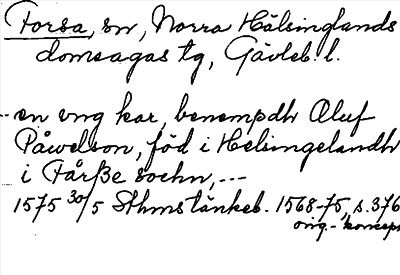 Forsa, sn, Norra Hälsinglands
domsagas tg, Gävleb. l.
-- en vng kar, benempdh Oluf
Påwelson, föd i Helsingelandh
i Fårße sochn, ---
1575 30/5 Sthmstänkeb. 1568-75, s. 376
orig.-koncept